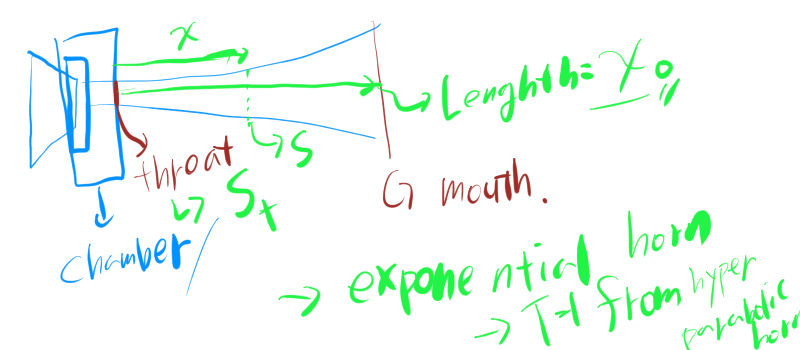 x
Lenghth= x₀
S
throat
↳ S_t
G mouth.
chamber
→ exponential horn
→ T=1 from hyper
parabolic
horn